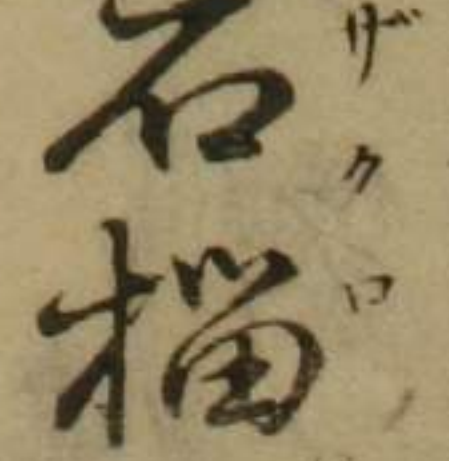 石榴
ザクロ